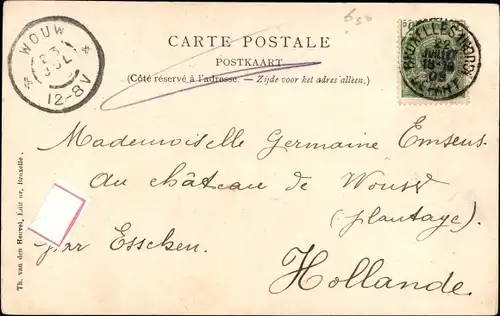 650
WOUW
23
JUL
12-8V
CARTE POSTALE
POSTKAART
(Côté réservé à l'adresse. — Zijde voor het adres alleen.)
BRUXELLES (NORD)
22
JUIL
09
Mademoiselle Germaine Emsens
au château de Wouw
(plantage).
par Esschen.
Hollande.
Th. van den Heuvel, Editeur, Bruxelles.